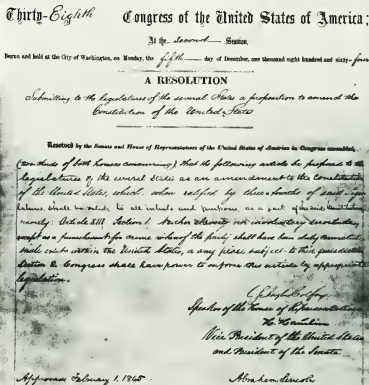 Thirty-Eighth Congress of the United States of America;
At the second Session,
Begun and held at the City of Washington, on Monday, the fifth day of December, one thousand eight hundred and sixty-four
A RESOLUTION
Submitting to the legislatures of the several States a proposition to amend the
Constitution of the United States
Resolved by the Senate and House of Representatives of the United States of America in Congress assembled,
(two thirds of both houses concurring), that the following article be proposed to the
legislatures of the several States as an amendment to the Constitution
of the United States, which, when ratified by three-fourths of said
shall be valid to all intents and purposes, as a part of the said Constitution,
namely: Article XIII. Section 1. Neither slavery nor involuntary servitude,
except as a punishment for crime whereof the party shall have been duly convicted,
shall exist within the United States, or any place subject to their jurisdiction.
Section 2. Congress shall have power to enforce this article by appropriate
legislation.
Speaker of the House of Representatives
H. Hamlin
Vice President of the United States
and President of the Senate
Approved February 1, 1865.
Abraham Lincoln